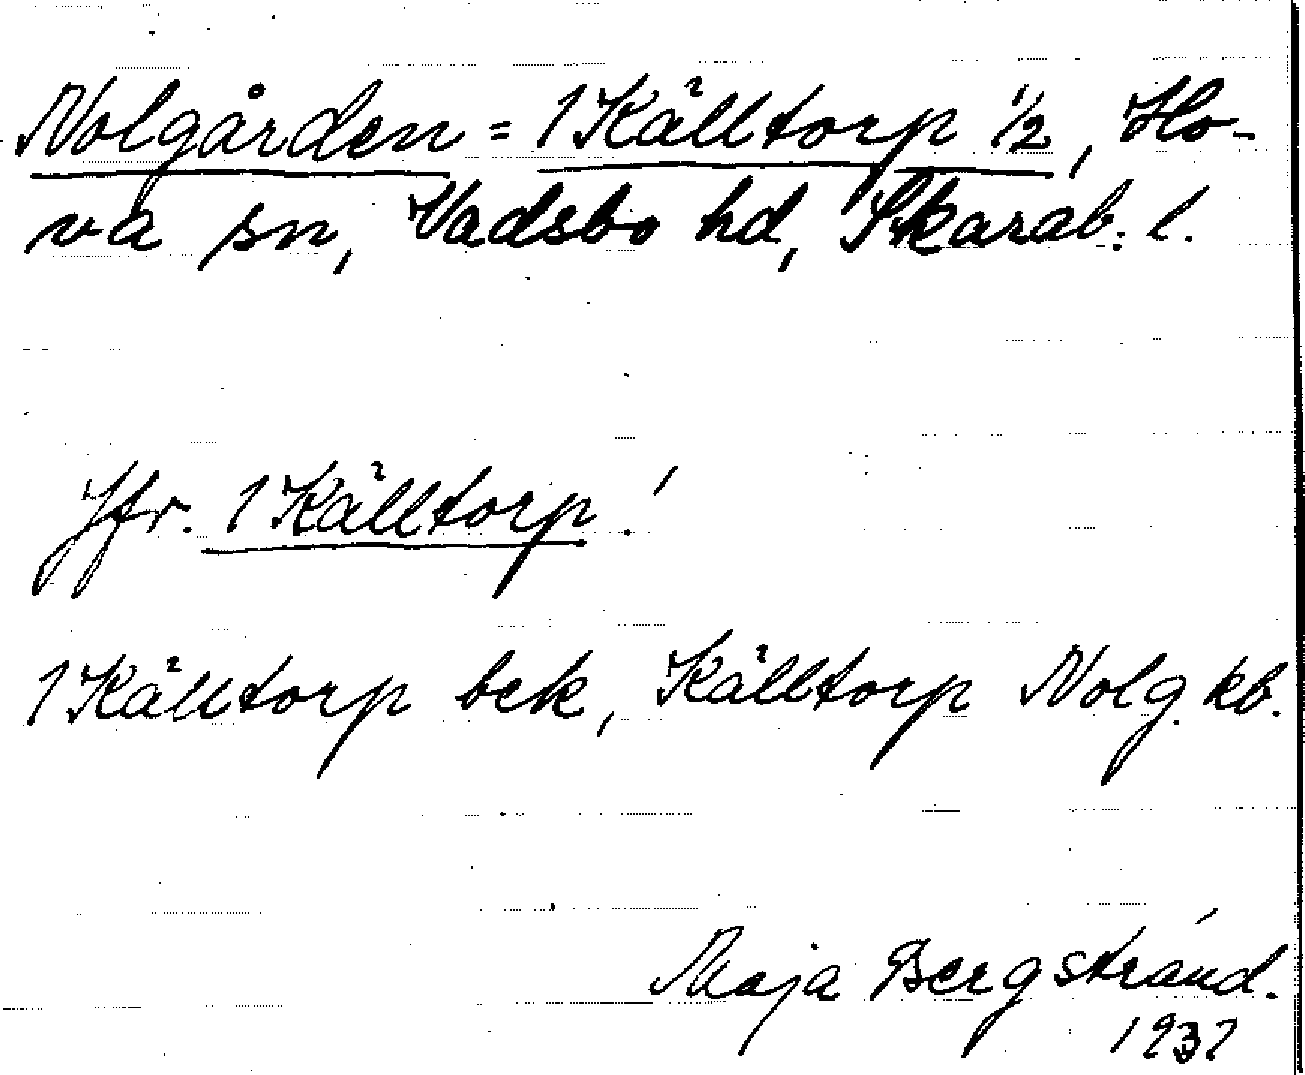 Nolgården = 1 Källtorp 1/2, Ho-
va sn, Vadsbo hd, Skarab. l.
Jfr. 1 Källtorp!
1 Källtorp bck, Källtorp Nolg. kb.
Maja Bergstrand.
1932